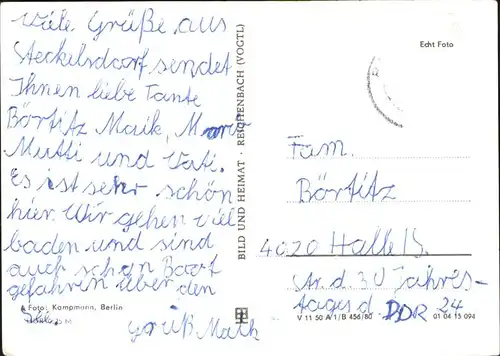 Viele Grüße aus
Steckelsdorf sendet
Ihnen liebe Tante
Börtitz Maik,
Mutti und Vati.
Es ist sehr schön
hier. Wir gehen viel
baden und sind
auch schon Boot
gefahren über den
Foto: Kampmann, Berlin
See.
Gruß Maik
BILD UND HEIMAT · REICHENBACH (VOGTL)
Echt Foto
Fam.
Börtitz
4020 Halle/S.
Str. d. 30 Jahres-
tages d DDR 24
V 11 50 A 1/B 456/80
01 04 15 094